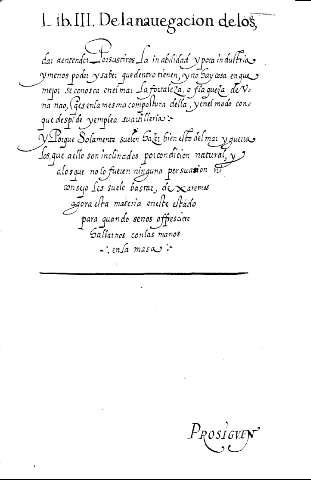 Lib. III. De la nauegacion de los,
dar aentender Por sus tiros la inabilidad y poca industria
y menos poder y saber que dentro tienen, y no hay cosa en que
mejor se conosca en el mar la fortaleza, o flaqueza de V
na nao, Ques en la mesma compostura della, y en el modo con
que despide y emplea su artilleria
Y Porque Solamente suelen hazer bien esto del mar y guerra
los, que a ello son inclinados por condicion natural, y
a los que no lo fueren ninguno persuasion ni
consejo les suele bastar, dexaremos
agora esta materia en este estado
para quando se nos offresciere
hallarnos con las manos
en la masa
PROSIGVEN